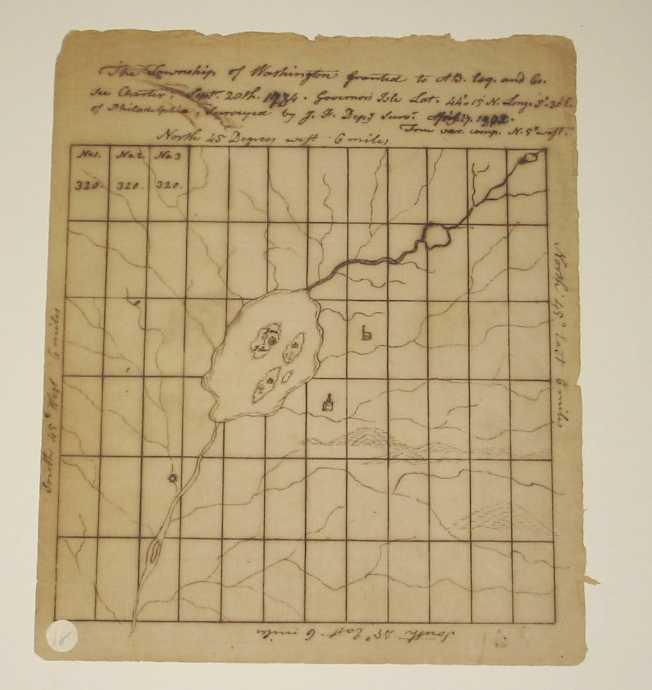 The Township of Washington granted to A.B. Esq. and Co.
See Charter, Sept. 20th. Governors Isle Lat. 44°-15 N. Long.
of Philadelphia, Surveyed by J. F. Dep.y Surv.r
Four var. comp. N. 5° west.
North 45 Degrees west 6 miles
No 1. No 2. No 3
320. 320. 320.
North 45° East 6 miles
South 45° West 6 miles
South 45° East 6 miles